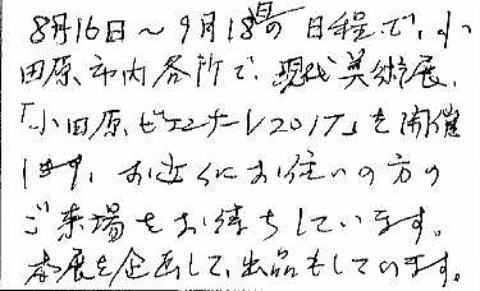 8月16日～9月18日の日程で、小
田原、市内各所で、現代美術展、
「小田原ビエンナーレ2017」を開催
します。お近くにお住いの方の
ご来場をお待ちしています。
本展を企画して、出品もしています。